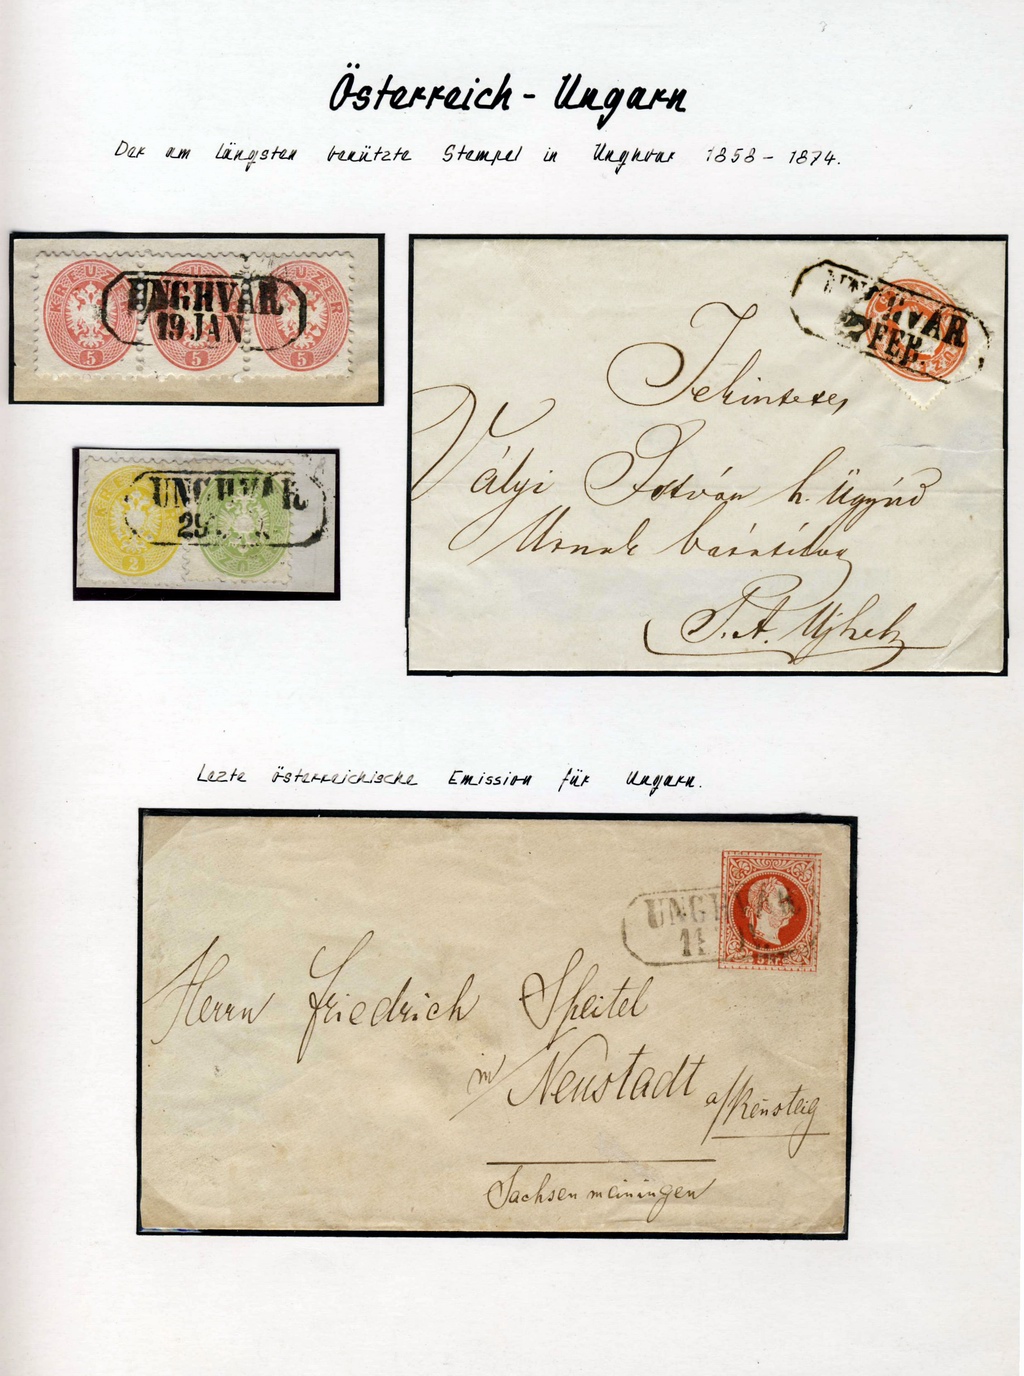 Österreich - Ungarn
Der am längsten benützte Stempel in Unghvar 1858 - 1874.
KREUZER
UNGHVÁR
19 JAN
5 5 5
UNGHVÁR
29
2
UNGHVÁR
FEB.
Tekintetes
Vályi István h. Ügyvéd
Urnak
S. A. Ujhely
Lezte österreichische Emission für Ungarn.
UNGHVÁR
Herrn Friedrich Speitel
in Neustadt a/Rensteig
Sachsen meiningen